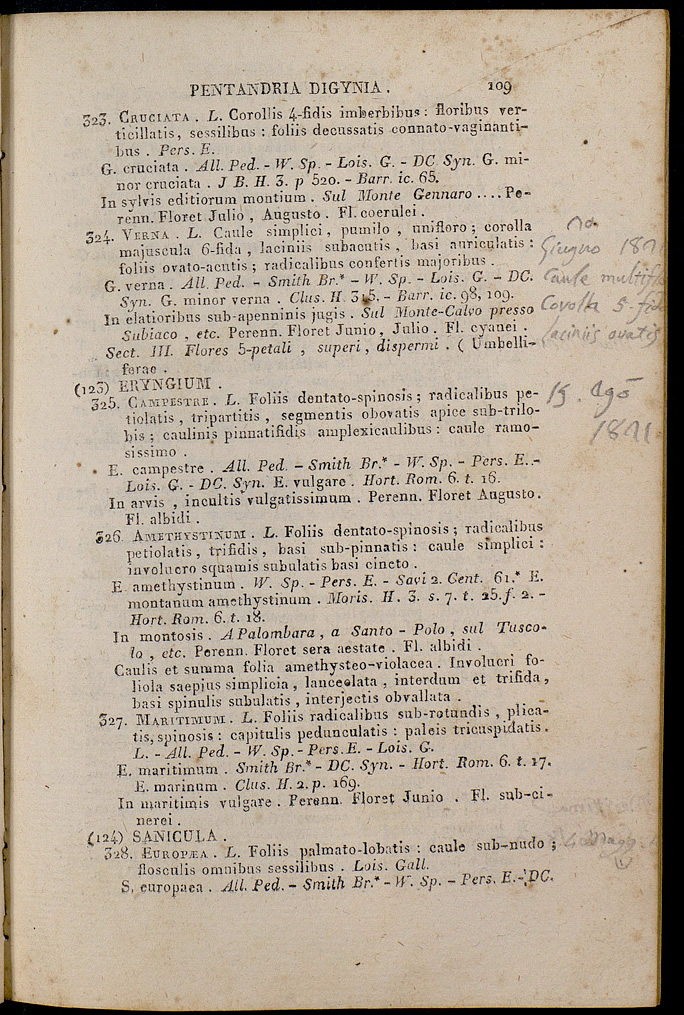 PENTANDRIA DIGYNIA. 109
323. CRUCIATA. L. Corollis 4-fidis imberbibus: floribus ver-
ticillatis, sessilibus: foliis decussatis connato-vaginanti-
bus. Pers. E.
G. cruciata. All. Ped. - W. Sp. - Lois. G. - DC. Syn. G. mi-
nor cruciata. J B. H. 3. p 520. - Barr. ic. 65.
In sylvis editiorum montium. Sul Monte Gennaro .... Pe-
renn. Floret Julio, Augusto. Fl. coerulei.
324. VERNA. L. Caule simplici, pumilo, unifloro; corolla
majuscula 6-fida, laciniis subacutis, basi auriculatis:
foliis ovato-acutis; radicalibus confertis majoribus.
G. verna. All. Ped. - Smith Br.* - W. Sp. - Lois. G. - DC.
Syn. G. minor verna. Clus. H. 315. - Barr. ic. 98, 109.
In elatioribus sub-apenninis jugis. Sul Monte-Calvo presso
Subiaco, etc. Perenn. Floret Junio, Julio. Fl. cyanei.
Sect. III. Flores 5-petali, superi, dispermi. (Umbelli-
ferae.
(123) ERYNGIUM.
325. CAMPESTRE. L. Foliis dentato-spinosis; radicalibus pe-
tiolatis, tripartitis, segmentis obovatis apice sub-trilo-
bis; caulinis pinnatifidis amplexicaulibus: caule ramo-
sissimo.
E. campestre. All. Ped. - Smith Br.* - W. Sp. - Pers. E. -
Lois. G. - DC. Syn. E. vulgare. Hort. Rom. 6. t. 16.
In arvis, incultis vulgatissimum. Perenn. Floret Augusto.
Fl. albidi.
326. AMETHYSTINUM. L. Foliis dentato-spinosis; radicalibus
petiolatis, trifidis, basi sub-pinnatis: caule simplici:
involucro squamis subulatis basi cincto.
E. amethystinum. W. Sp. - Pers. E. - Savi 2. Cent. 61.* E.
montanum amethystinum. Moris. H. 3. s. 7. t. 25. f. 2. -
Hort. Rom. 6. t. 18.
In montosis. A Palombara, a Santo - Polo, sul Tusco-
lo, etc. Perenn. Floret sera aestate. Fl. albidi.
Caulis et summa folia amethysteo-violacea. Involucri fo-
liola saepius simplicia, lanceolata, interdum et trifida,
basi spinulis subulatis, interjectis obvallata.
327. MARITIMUM. L. Foliis radicalibus sub-rotundis, plica-
tis, spinosis: capitulis pedunculatis: paleis tricuspidatis.
L. - All. Ped. - W. Sp. - Pers. E. - Lois. G.
E. maritimum. Smith Br.* - DC. Syn. - Hort. Rom. 6. t. 17.
E. marinum. Clus. H. 2. p. 169.
In maritimis vulgare. Perenn. Floret Junio. Fl. sub-ci-
nerei.
(124) SANICULA.
328. EUROPÆA. L. Foliis palmato-lobatis: caule sub-nudo;
flosculis omnibus sessilibus. Lois. Gall.
S. europaea. All. Ped. - Smith Br.* - W. Sp. - Pers. E. - DC.
Giugno 182
Caule multiflo
Corolla 5-fida
laciniis ovatis
15. Ago
1821